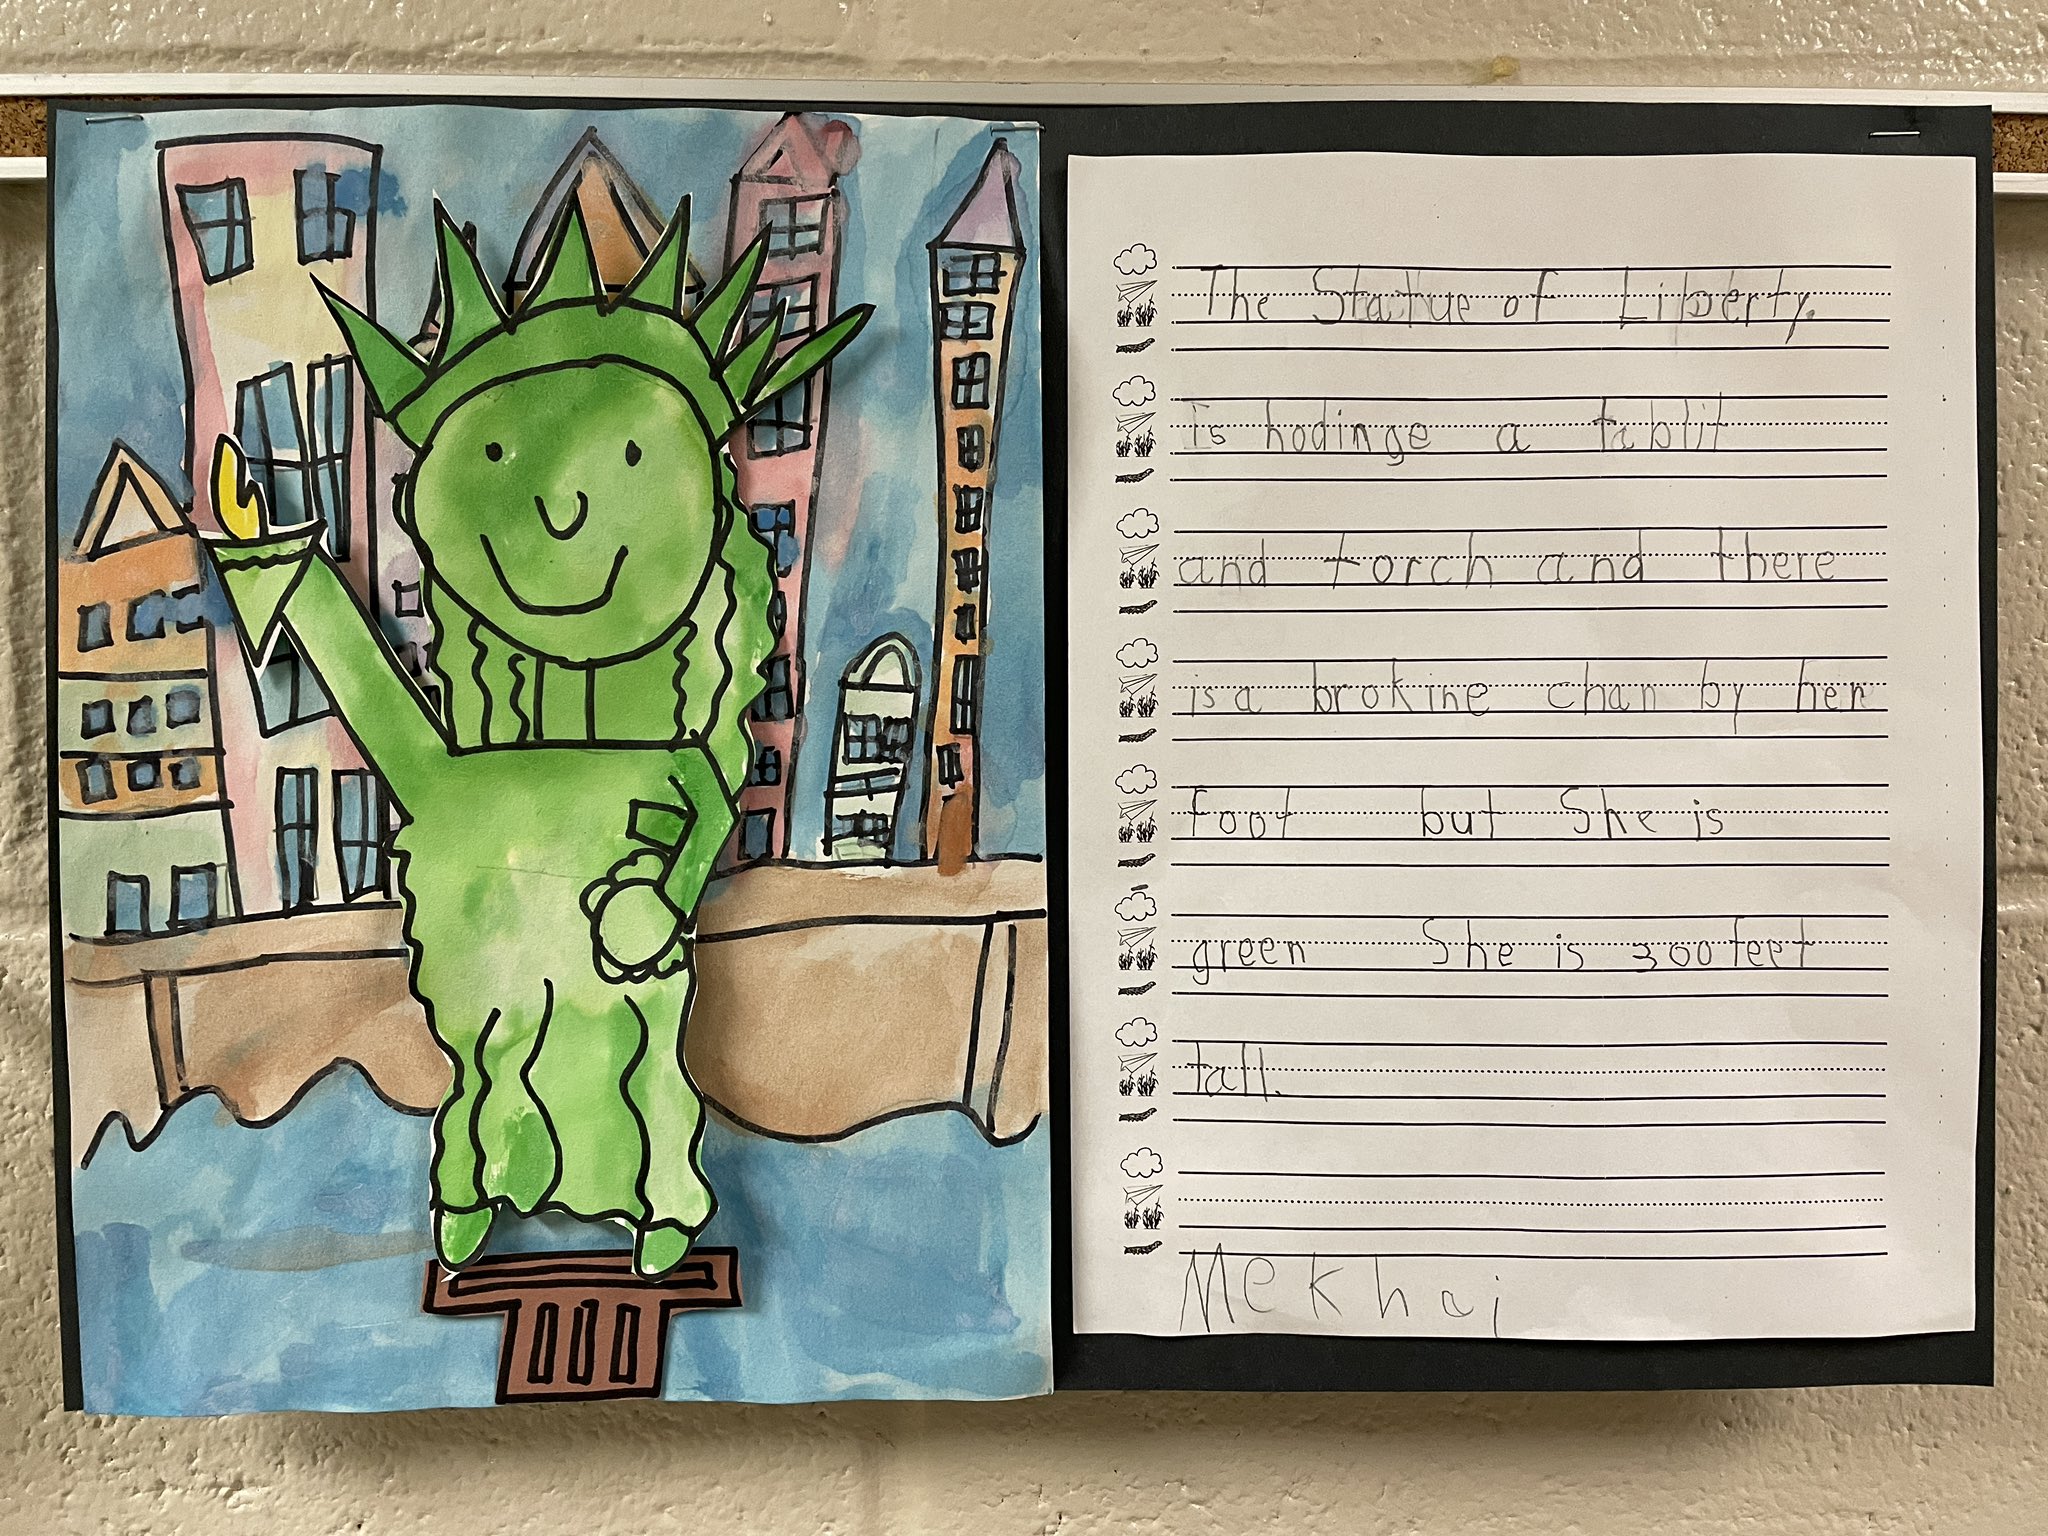 The Statue of Liberty.
is hodinge a tablit
and torch and there
is a brokine chan by her
foot but She is
green She is 300 feet
tall.
Mekhai